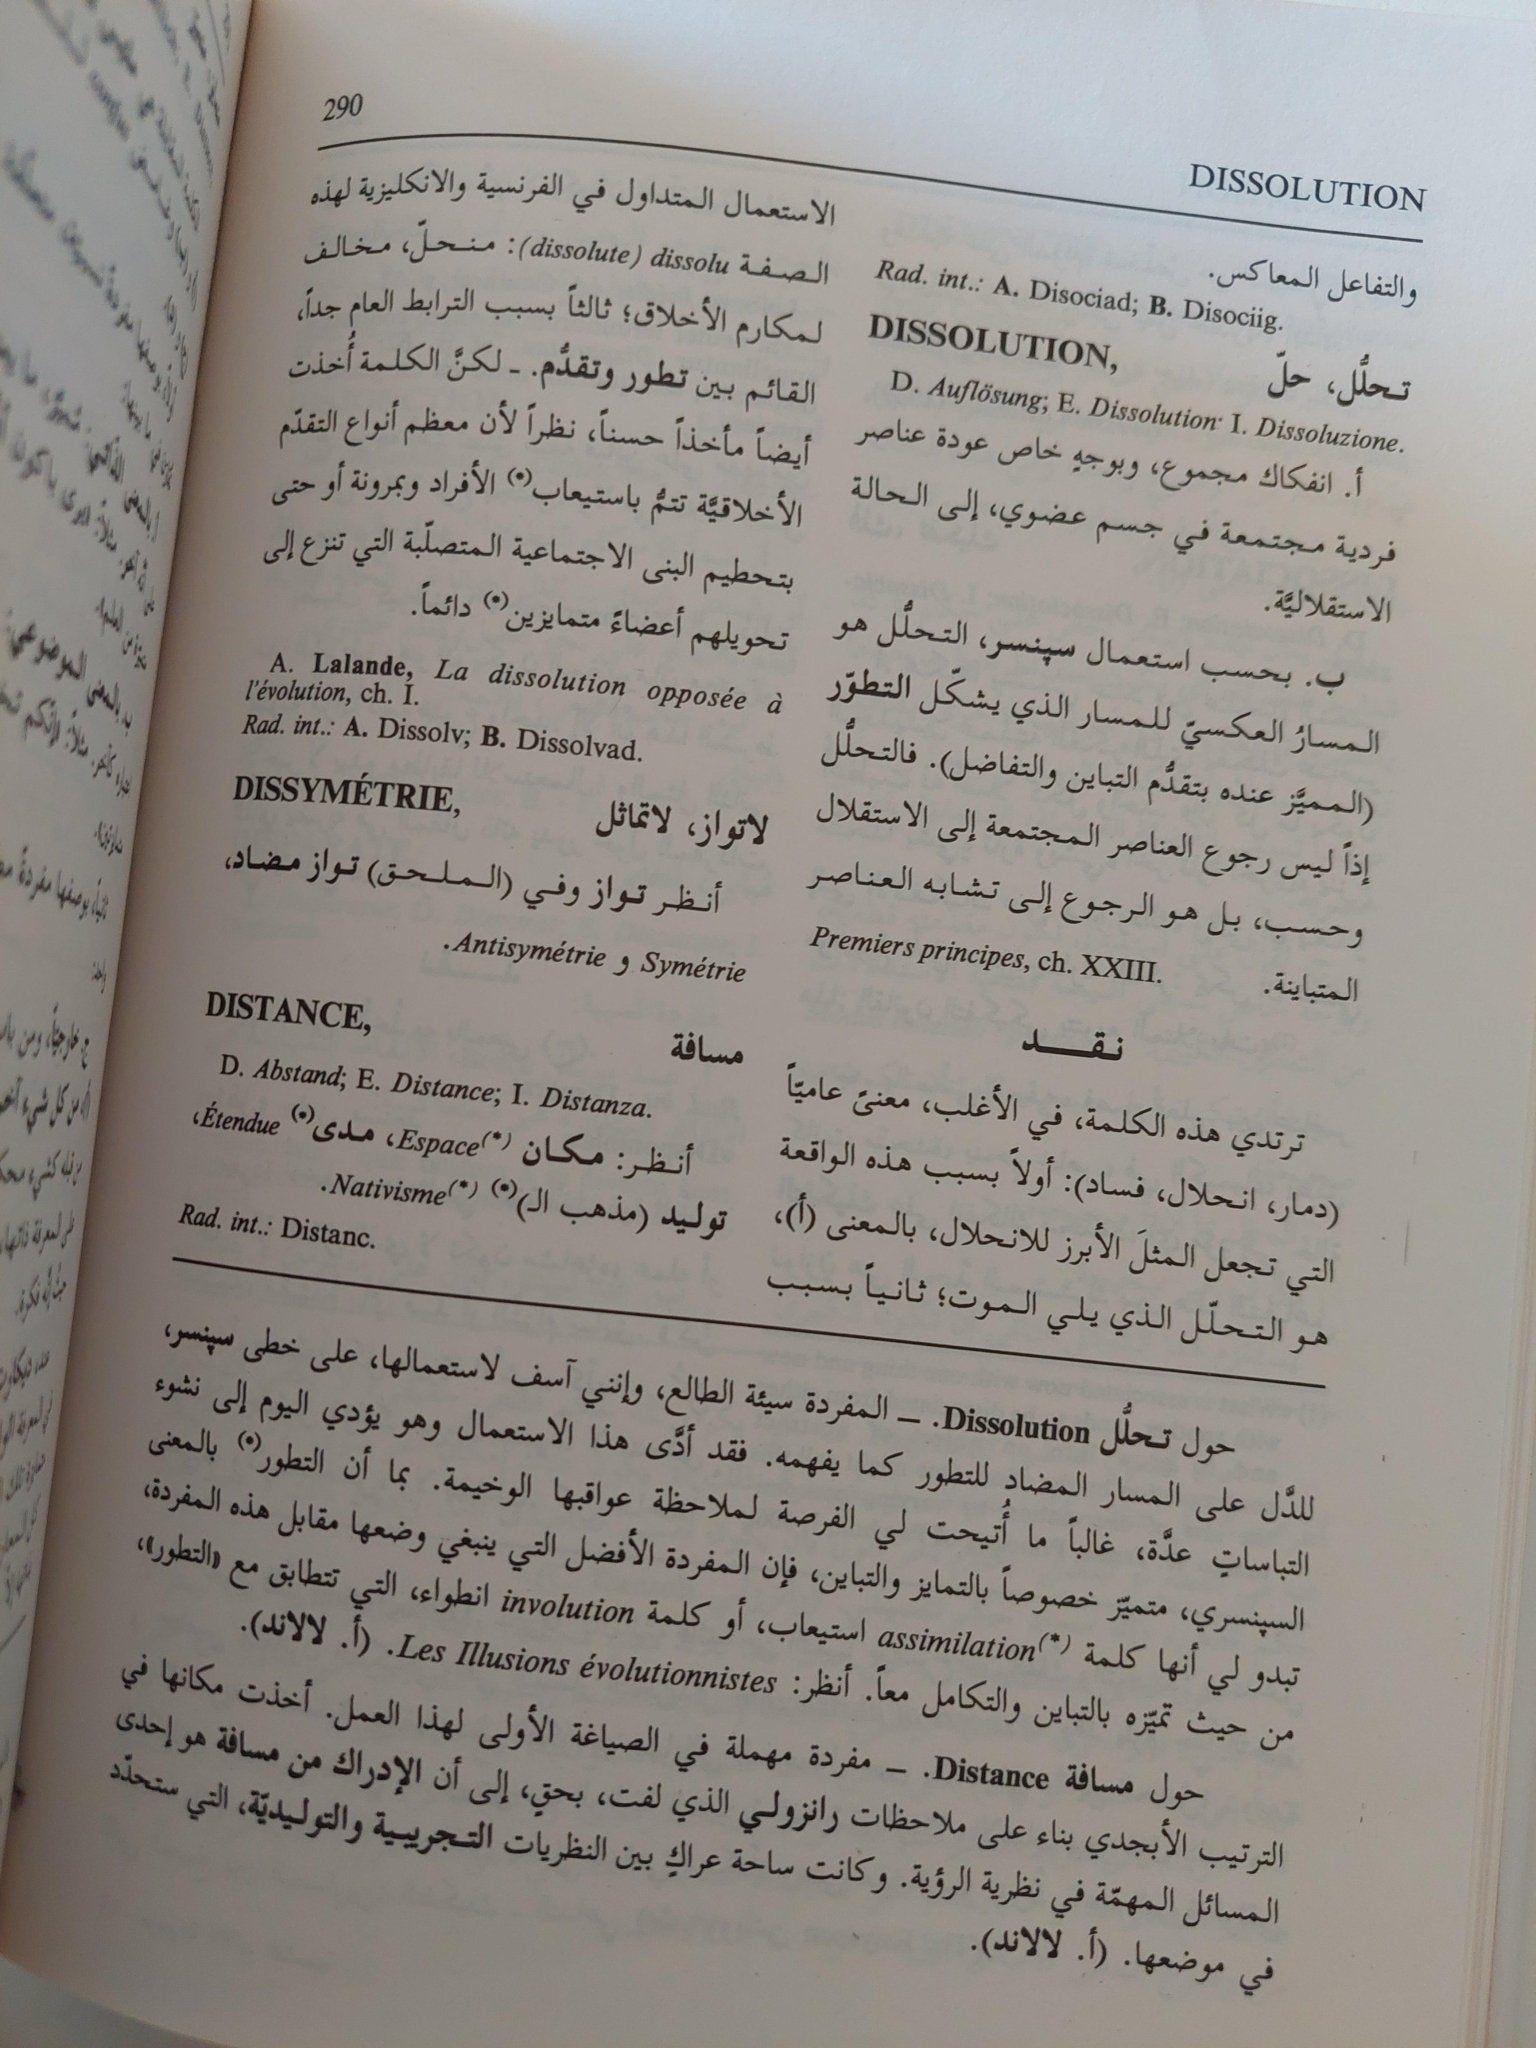 290
DISSOLUTION
والتفاعل المعاكس.
Rad. int.: A. Disociad; B. Disociig.
DISSOLUTION, تحلُّل، حلّ
D. Auflösung; E. Dissolution; I. Dissoluzione.
أ. انفكاك مجموع، وبوجهٍ خاص عودة عناصر
فردية مجتمعة في جسم عضوي، إلى الحالة
الاستقلاليَّة.
ب. بحسب استعمال سپنسر، التحلُّل هو
المسارُ العكسيّ للمسار الذي يشكّل التطوّر
(المميَّز عنده بتقدُّم التباين والتفاضل). فالتحلُّل
إذاً ليس رجوع العناصر المجتمعة إلى الاستقلال
وحسب، بل هو الرجوع إلى تشابه العناصر
المتباينة. Premiers principes, ch. XXIII.
نقــــد
ترتدي هذه الكلمة، في الأغلب، معنىً عاميّاً
(دمار، انحلال، فساد): أولاً بسبب هذه الواقعة
التي تجعل المثلَ الأبرز للانحلال، بالمعنى (أ)،
هو التحلّل الذي يلي الموت؛ ثانياً بسبب
الاستعمال المتداول في الفرنسية والانكليزية لهذه
الصفة dissolu (dissolute): منحلّ، مخالف
لمكارم الأخلاق؛ ثالثاً بسبب الترابط العام جداً،
القائم بين تطور وتقدُّم. ـ لكنَّ الكلمة أُخذت
أيضاً مأخذاً حسناً، نظراً لأن معظم أنواع التقدّم
الأخلاقيَّة تتمُّ باستيعاب(*) الأفراد وبمرونة أو حتى
بتحطيم البنى الاجتماعية المتصلّبة التي تنزع إلى
تحويلهم أعضاءً متمايزين(*) دائماً.
A. Lalande, La dissolution opposée à
l'évolution, ch. I.
Rad. int.: A. Dissolv; B. Dissolvad.
DISSYMÉTRIE, لاتواز، لاتماثل
أنظر تواز وفي (الملحق) تواز مضاد،
Symétrie و Antisymétrie.
DISTANCE, مسافة
D. Abstand; E. Distance; I. Distanza.
أنظر: مكان Espace(*)، مدى(*) Étendue،
توليد (مذهب الـ)(*) Nativisme(*).
Rad. int.: Distanc.
حول تحلُّل Dissolution. ــ المفردة سيئة الطالع، وإنني آسف لاستعمالها، على خطى سپنسر،
للدَّل على المسار المضاد للتطور كما يفهمه. فقد أدَّى هذا الاستعمال وهو يؤدي اليوم إلى نشوء
التباساتٍ عدَّة، غالباً ما أُتيحت لي الفرصة لملاحظة عواقبها الوخيمة. بما أن التطور(*) بالمعنى
السپنسري، متميّز خصوصاً بالتمايز والتباين، فإن المفردة الأفضل التي ينبغي وضعها مقابل هذه المفردة،
تبدو لي أنها كلمة assimilation(*) استيعاب، أو كلمة involution انطواء، التي تتطابق مع «التطور»،
من حيث تميّزه بالتباين والتكامل معاً. أنظر: Les Illusions évolutionnistes. (أ. لالاند).
حول مسافة Distance. ــ مفردة مهملة في الصياغة الأولى لهذا العمل. أخذت مكانها في
الترتيب الأبجدي بناء على ملاحظات رانزولي الذي لفت، بحقٍ، إلى أن الإدراك من مسافة هو إحدى
المسائل المهمّة في نظرية الرؤية. وكانت ساحة عراكٍ بين النظريات التجريبية والتوليديّة، التي ستحدّد
في موضعها. (أ. لالاند).